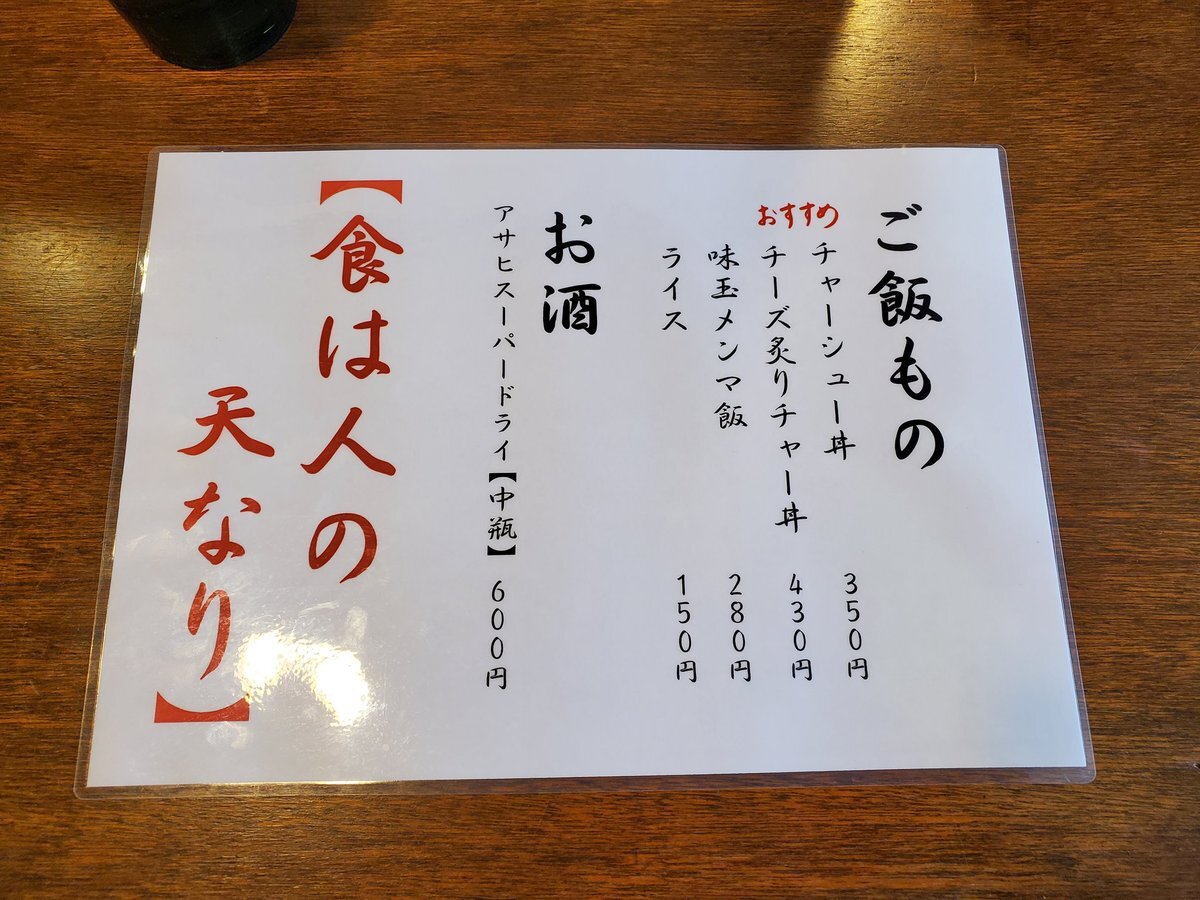 ご飯もの
チャーシュー丼 350円
おすすめ
チーズ炙りチャー丼 430円
味玉メンマ飯 280円
ライス 150円
お酒
アサヒスーパードライ【中瓶】 600円
【食は人の
天なり】